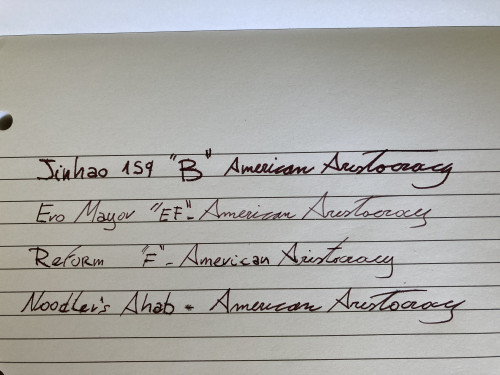 Jinhao 159 "B" American Aristocracy
Ero Mayor "EF" - American Aristocracy
Reform "F" - American Aristocracy
Noodler's Ahab - American Aristocracy